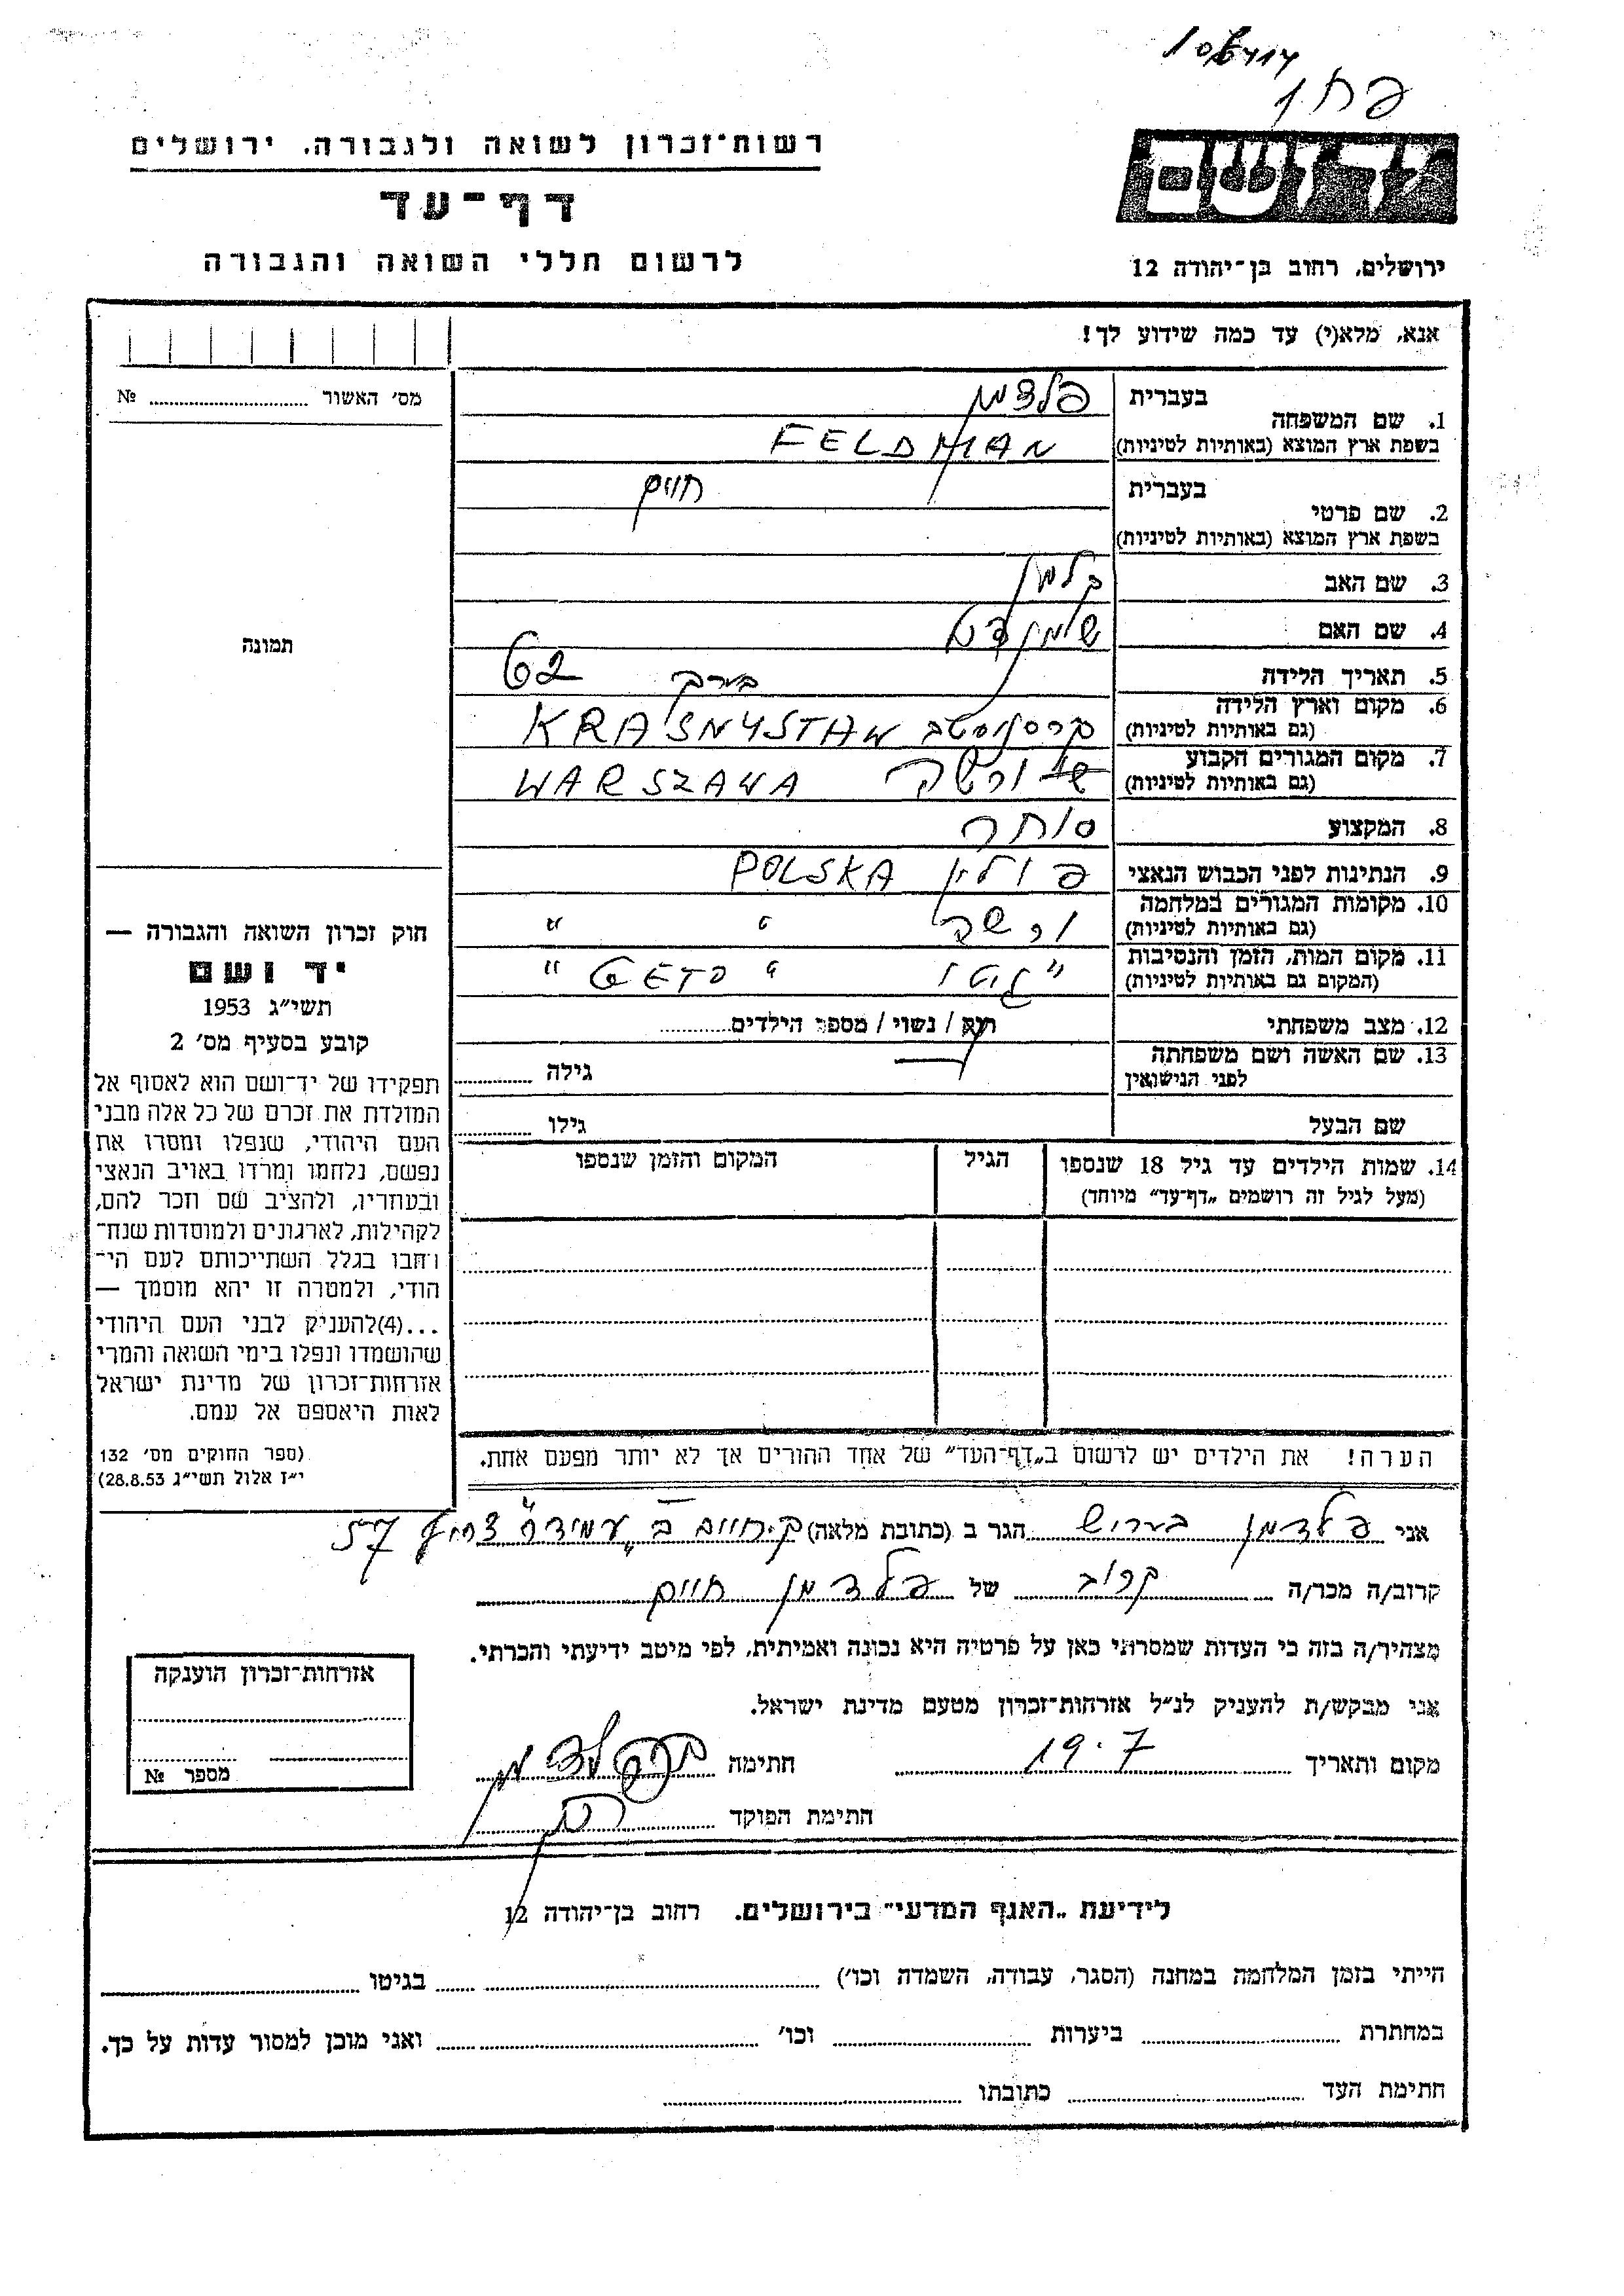 פתן
יד ושם
רשות־זכרון לשואה ולגבורה, ירושלים
דף־עד
לרשום חללי השואה והגבורה
ירושלים, רחוב בן־יהודה 12
אנא, מלא(י) עד כמה שידוע לך!
מס׳ האשור № 
1. שם המשפחה
בעברית פלדמן
בשפת ארץ המוצא (באותיות לטיניות) FELDMAN
2. שם פרטי
בעברית חיים
בשפת ארץ המוצא (באותיות לטיניות)
3. שם האב זלמן
4. שם האם
5. תאריך הלידה בערך 62
6. מקום וארץ הלידה (גם באותיות לטיניות) KRASNYSTAW
7. מקום המגורים הקבוע (גם באותיות לטיניות) ורשה WARSZAWA
8. המקצוע סוחר
9. הנתינות לפני הכבוש הנאצי פולין POLSKA
10. מקומות המגורים במלחמה (גם באותיות לטיניות) ורשה " "
11. מקום המות, הזמן והנסיבות (המקום גם באותיות לטיניות) "גטו" "GETO"
12. מצב משפחתי רוק / נשוי / מספר הילדים
13. שם האשה ושם משפחתה לפני הנישואין — גילה
שם הבעל גילו
14. שמות הילדים עד גיל 18 שנספו (מעל לגיל זה רושמים „דף־עד״ מיוחד)
הגיל
המקום והזמן שנספו
הערה! את הילדים יש לרשום ב„דף־העד״ של אחד ההורים אך לא יותר מפעם אחת.
תמונה
חוק זכרון השואה והגבורה —
יד ושם
תשי״ג 1953
קובע בסעיף מס׳ 2
תפקידו של יד־ושם הוא לאסוף אל
המולדת את זכרם של כל אלה מבני
העם היהודי, שנפלו ומסרו את
נפשם, נלחמו ומרדו באויב הנאצי
ובעוזריו, ולהציב שם וזכר להם,
לקהילות, לארגונים ולמוסדות שנח־
רובו בגלל השתייכותם לעם הי־
הודי, ולמטרה זו יהא מוסמך —
...(4)להעניק לבני העם היהודי
שהושמדו ונפלו בימי השואה והמרי
אזרחות־זכרון של מדינת ישראל
לאות היאספם אל עמם.
(ספר החוקים מס׳ 132
י״ז אלול תשי״ג 28.8.53)
אני פלדמן ברוש הגר ב (כתובת מלאה) ק. חיים ב' "עמידר" צריף 57
קרוב/ה מכר/ה קרוב של פלדמן חיים
מצהיר/ה בזה כי העדות שמסרתי כאן על פרטיה היא נכונה ואמיתית, לפי מיטב ידיעתי והכרתי.
אני מבקש/ת להעניק לנ״ל אזרחות־זכרון מטעם מדינת ישראל.
מקום ותאריך 19.7 חתימה ב פלדמן
חתימת הפוקד
אזרחות־זכרון הוענקה
מספר №
לידיעת „האגף המדעי״ בירושלים. רחוב בן־יהודה 12
הייתי בזמן המלחמה במחנה (הסגר, עבודה, השמדה וכו׳) בגיטו
במחתרת ביערות וכו׳ ואני מוכן למסור עדות על כך.
חתימת העד כתובתו